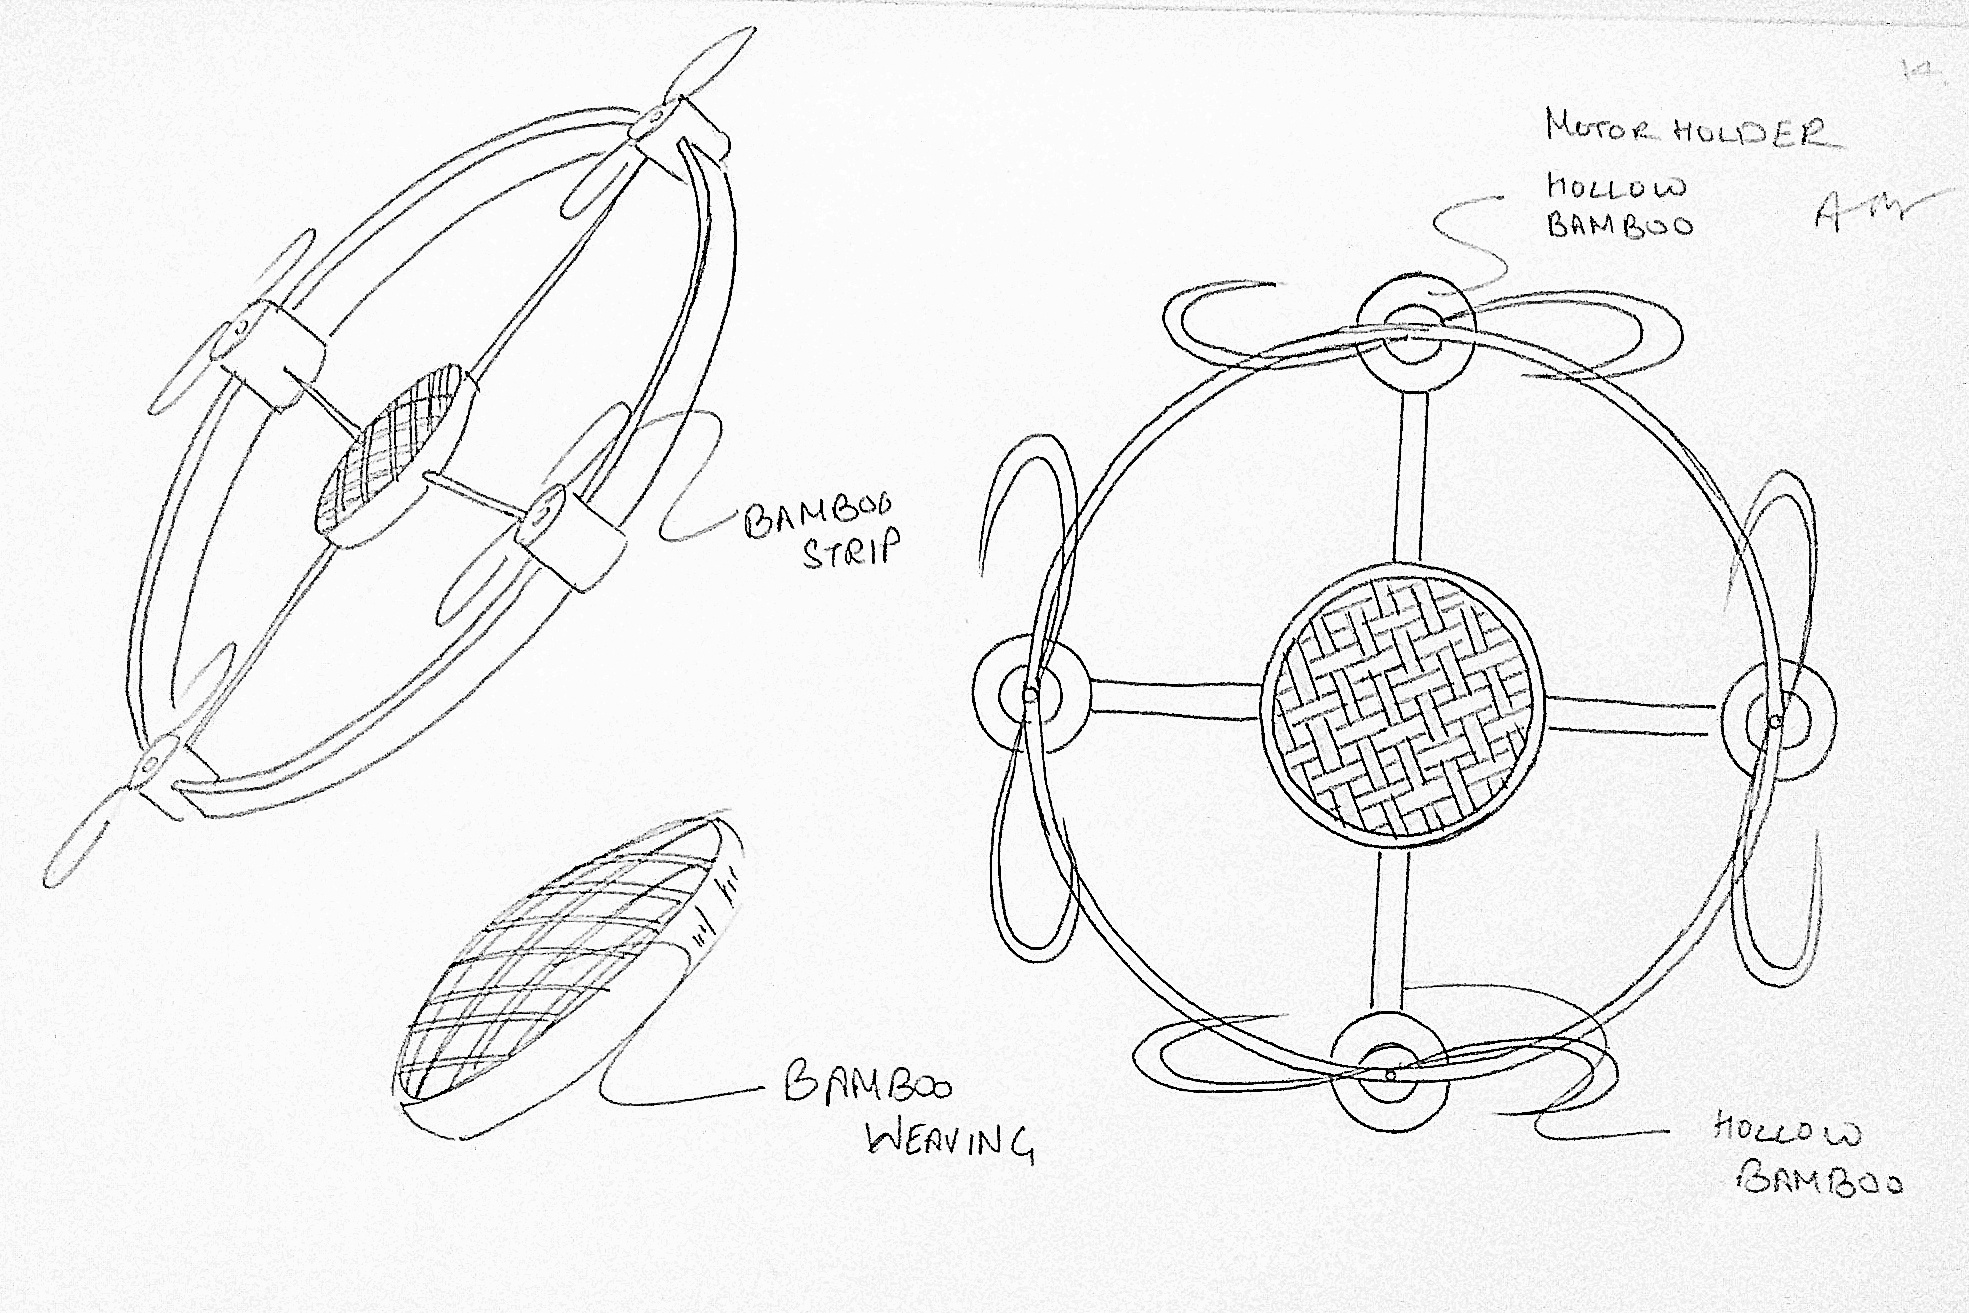 MOTOR HOLDER
HOLLOW
BAMBOO
BAMBOO
STRIP
BAMBOO
WEAVING
HOLLOW
BAMBOO